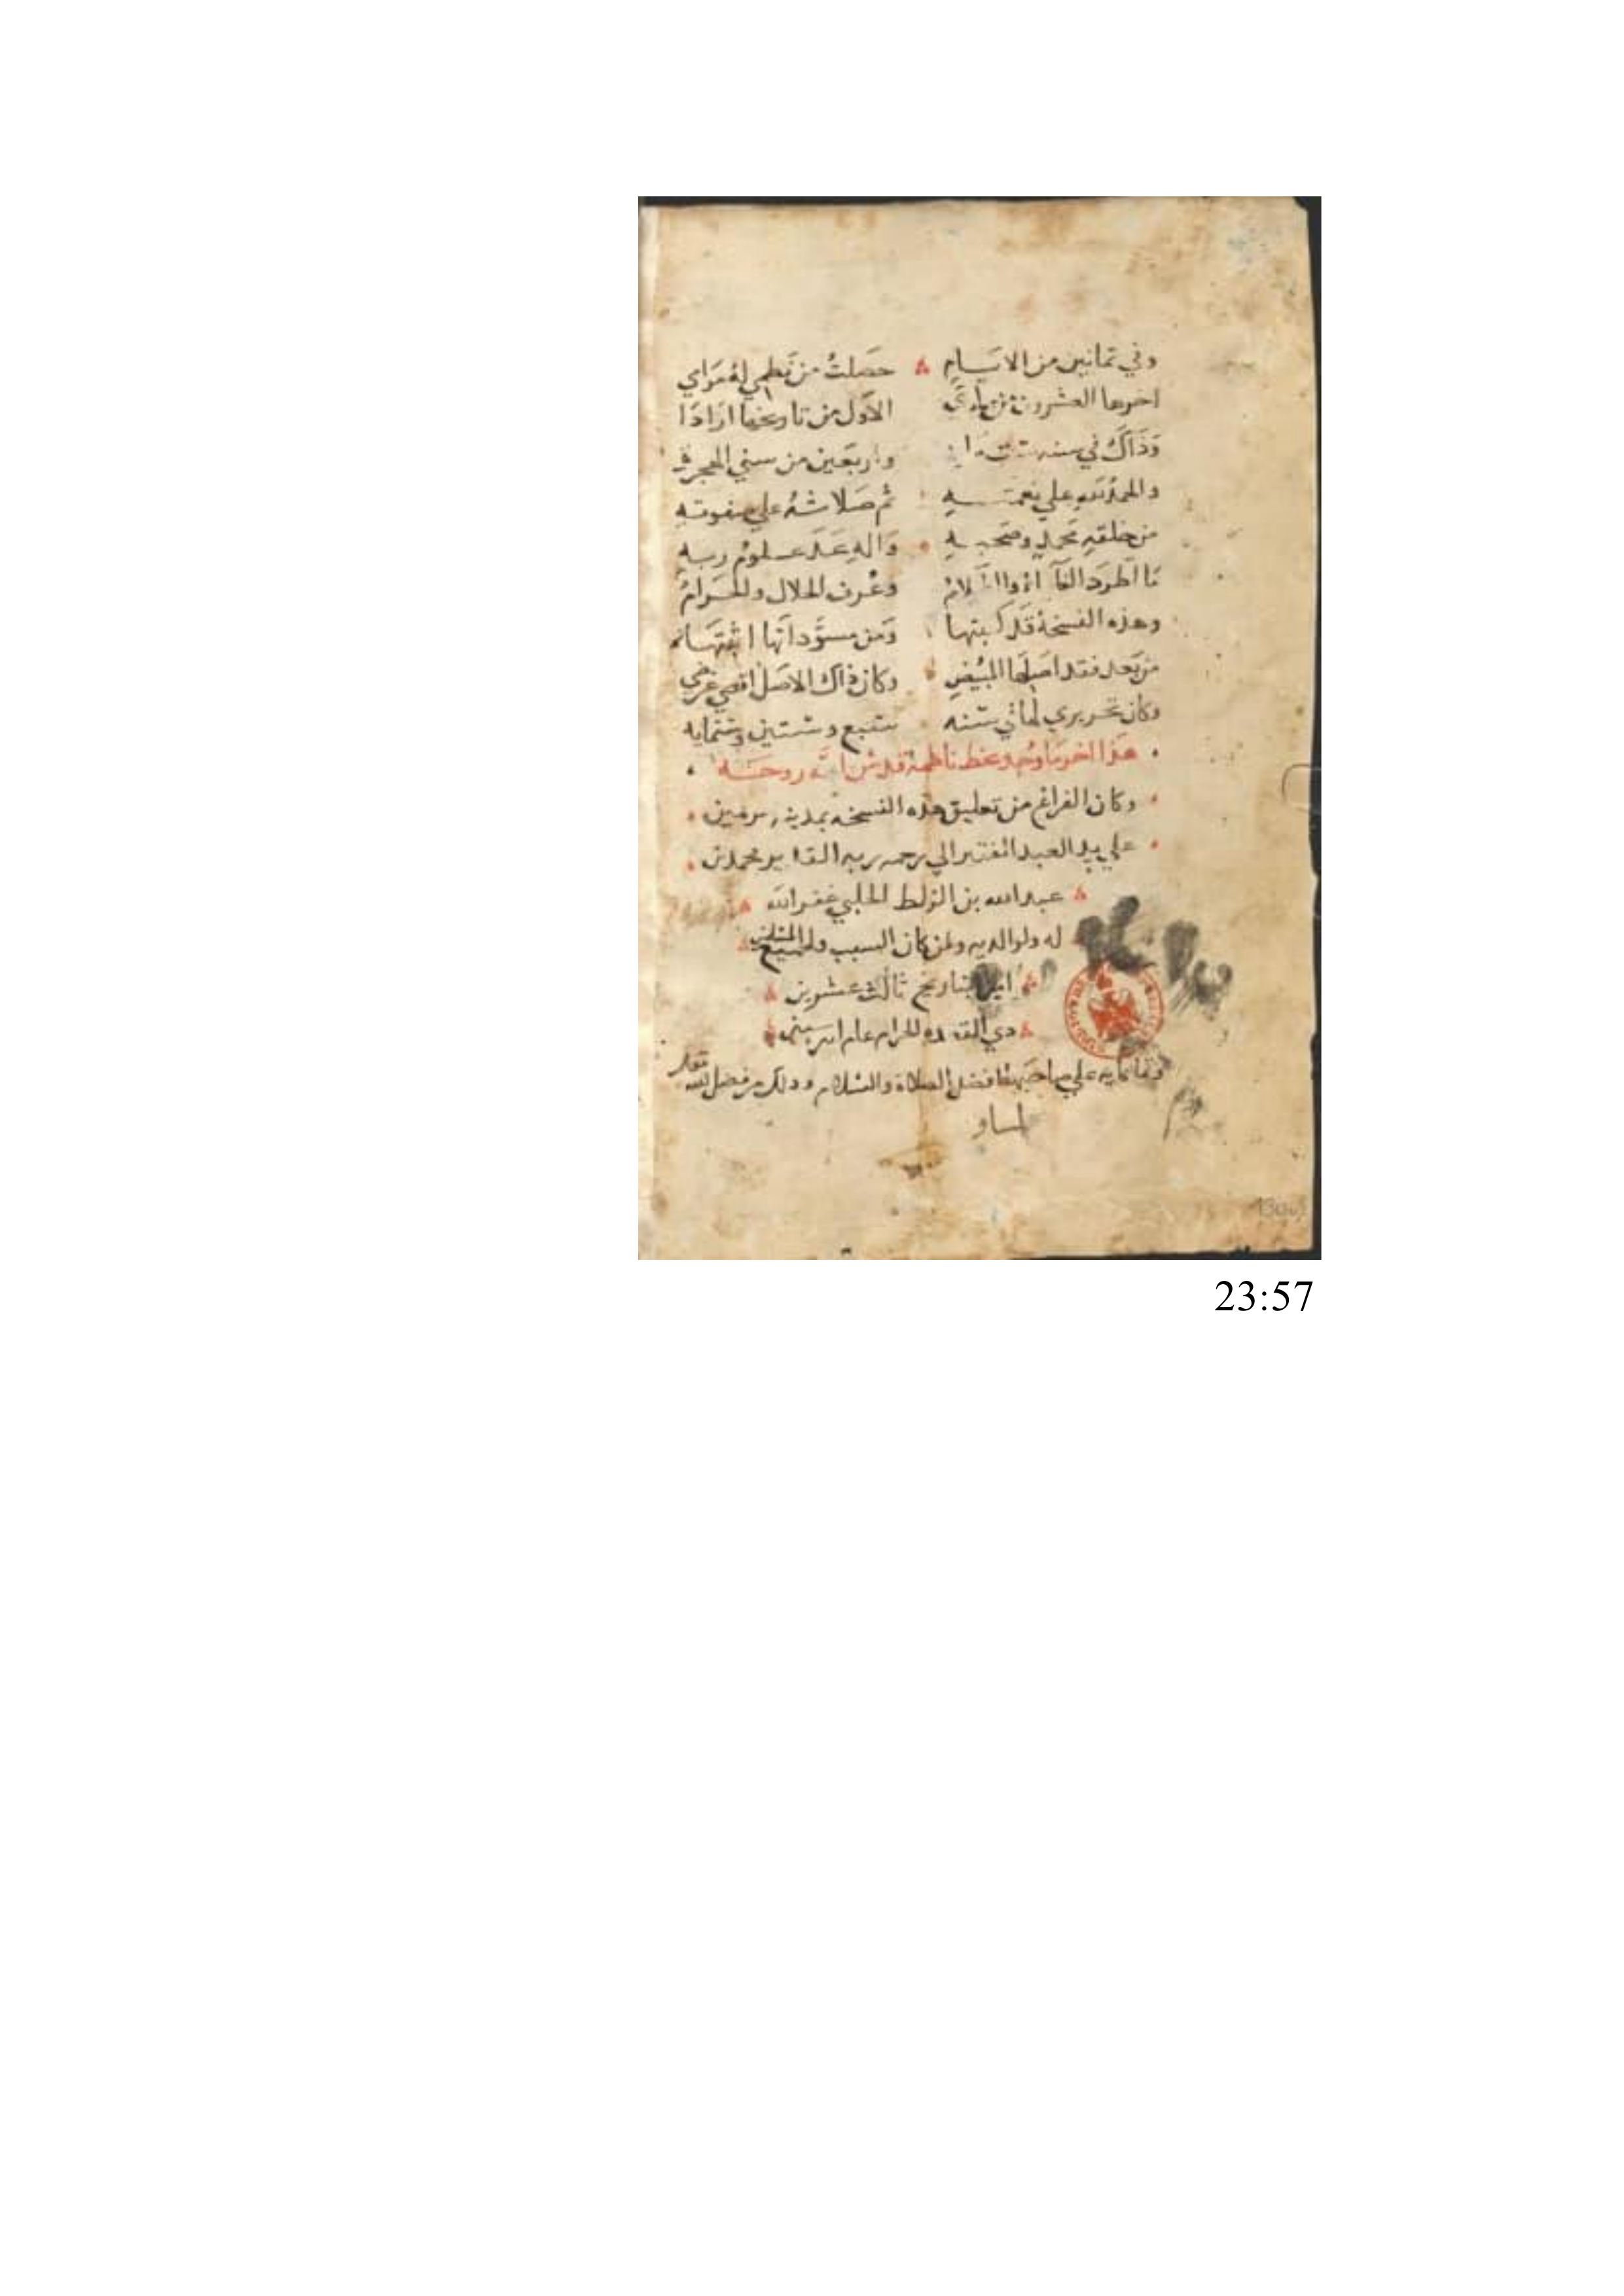 وفي ثمانين من الايام حصلت من نظمي له مرامي
اخرها العشرون من جمادى الاول من تاريخها ارادا
وذاك في سنه واربعين من سني الهجرة
والحمد لله علي نعمته ثم صلاته علي صفوته
من خلقه محمد وصحبه واله عد علوم ربه
ما اطرد وعرف الحلال والحرام
وهذه النسخة قد كتبتها ومن مسوداتها اثبتها
من بعد فقد اصلها المبيض وكان ذاك الاصل اقصي غرضي
وكان تحريري لها في سنه سبع وستين وستمايه
هذا اخر ما وجد بخط ناظمه قدس الله روحه
وكان الفراغ من تعليق هذه النسخه بمدينه سرمين
علي يد العبد الفقير الي رحمه ربه القدير محمد بن
عبد الله بن الزلط الحلبي غفر الله
له ولوالديه ولمن كان السبب ولجميع المسلمين
امين بتاريخ ثالث عشرين
ذي القعده الحرام عام
وثمانمايه علي صاحبها افضل الصلاة والسلام وذلك من فضل الله
23:57